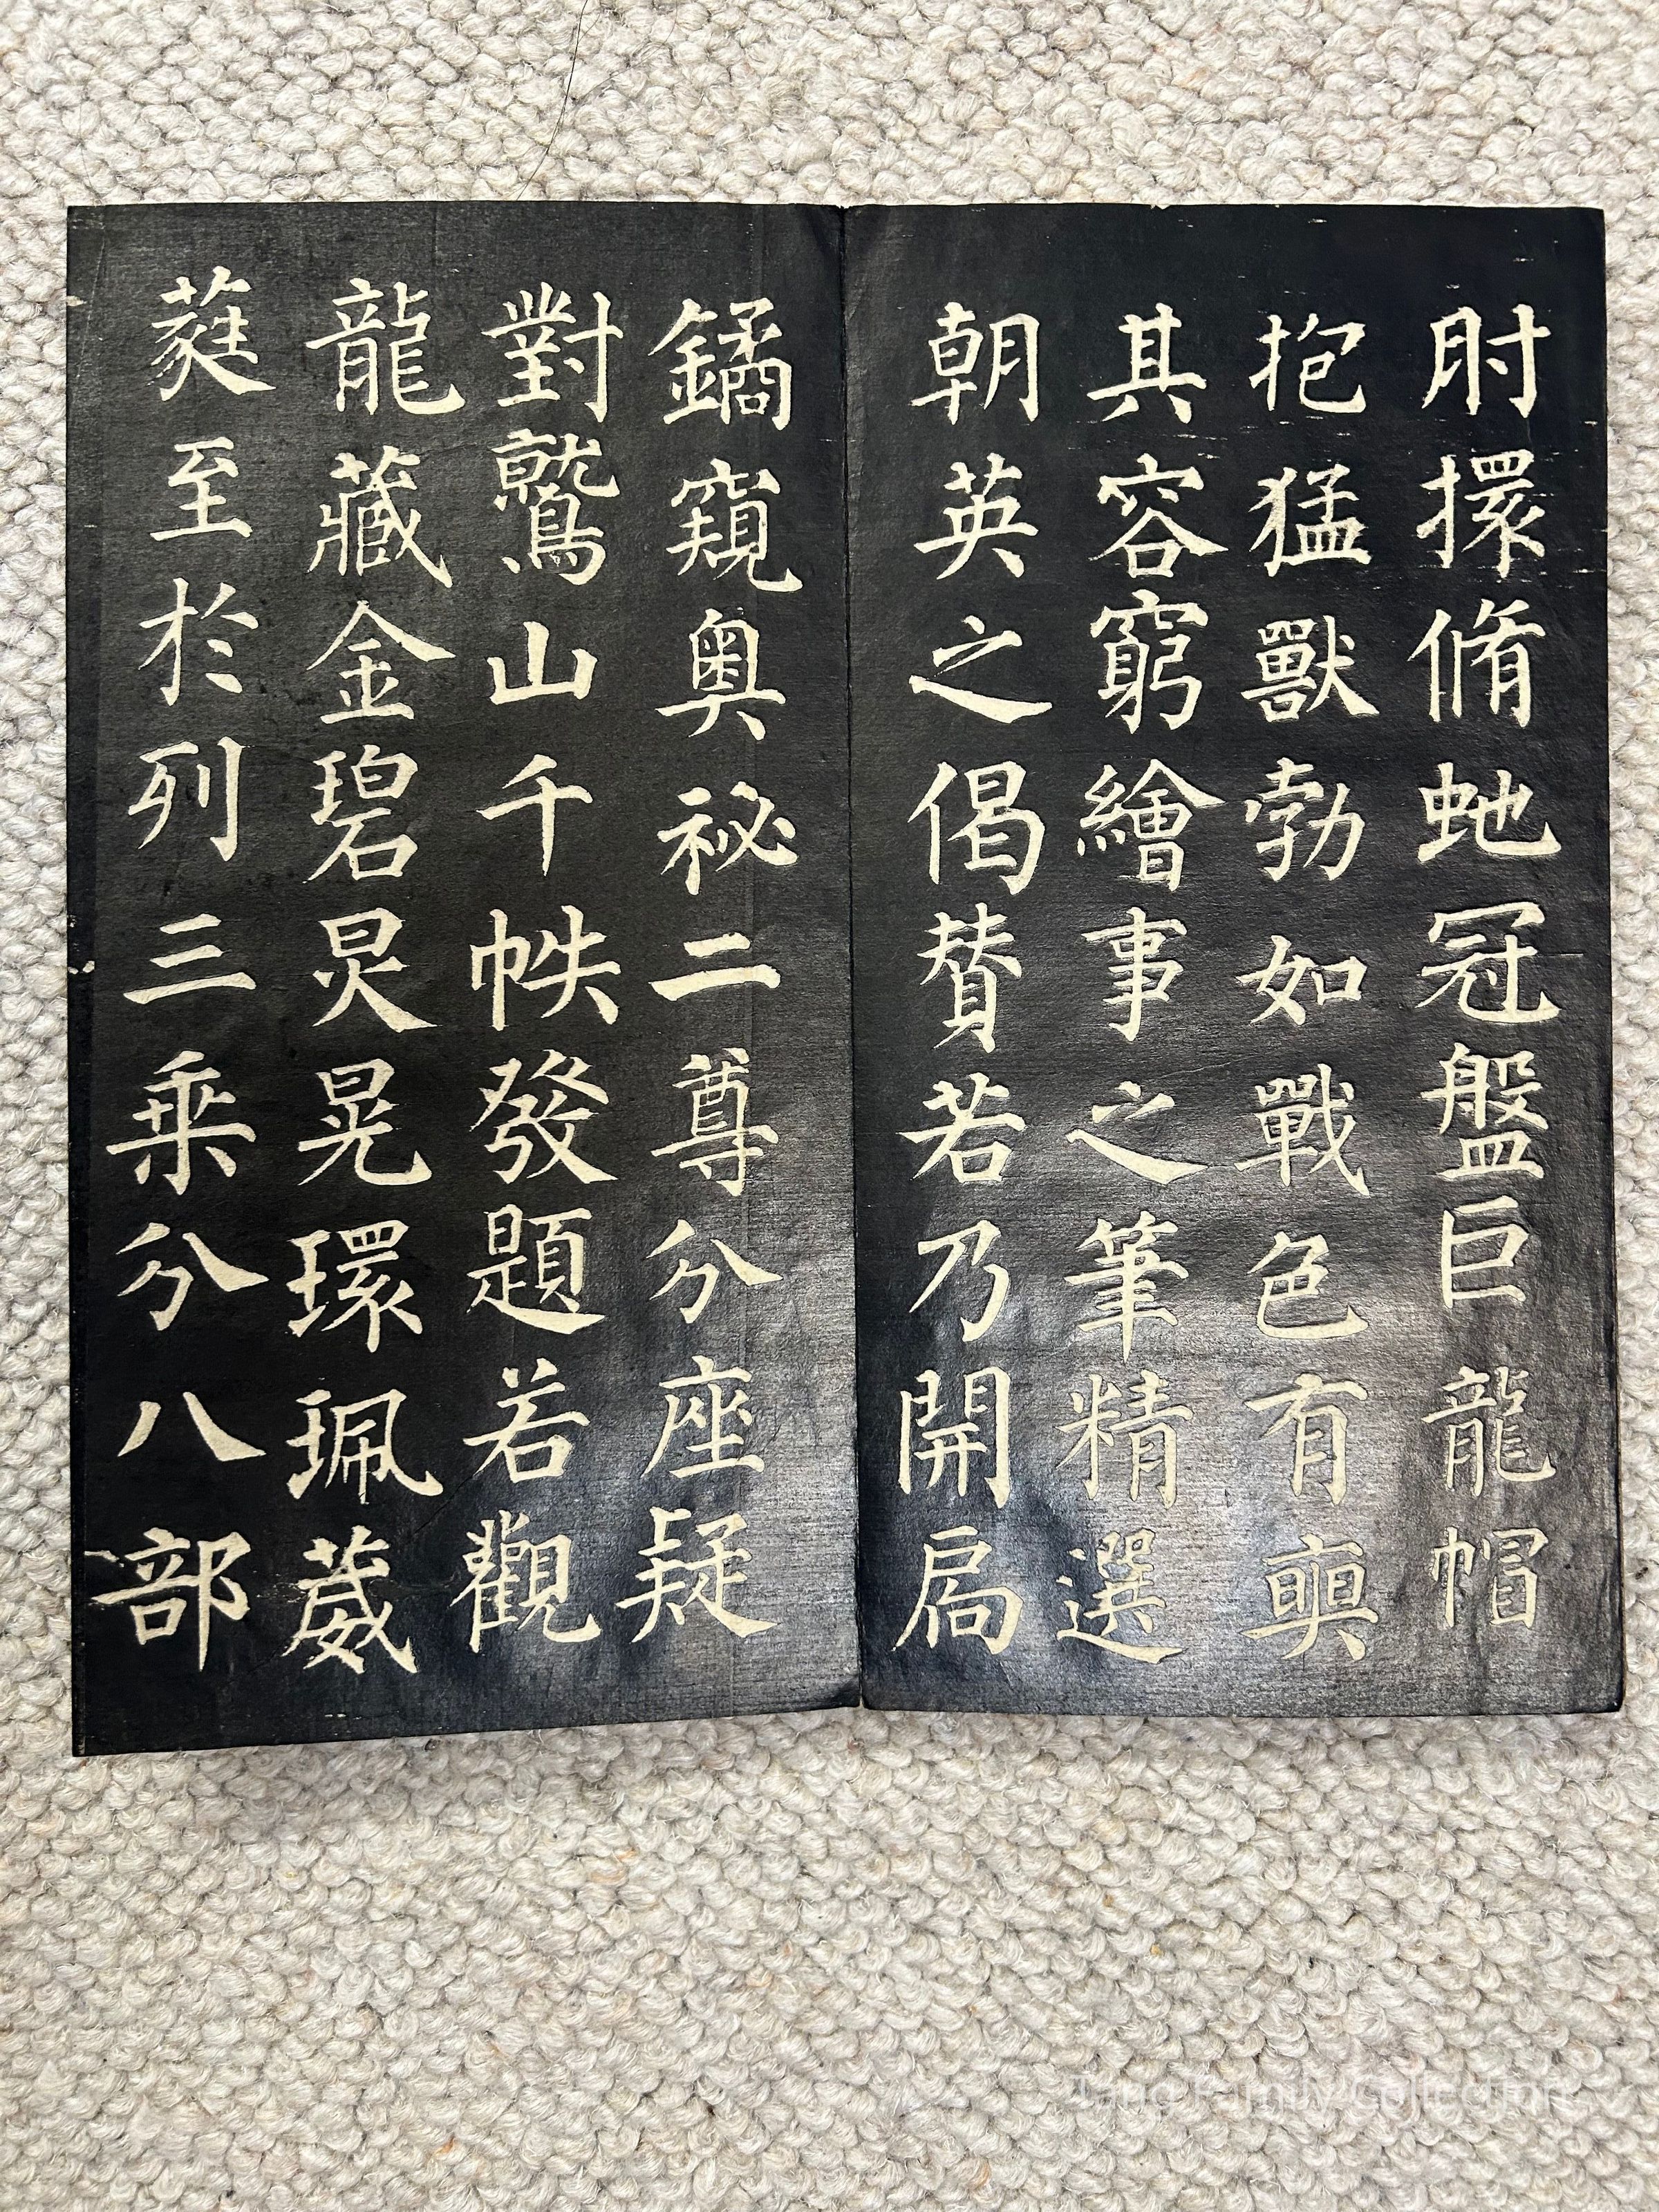 肘擐脩虵冠盤巨龍帽
抱猛獸勃如戰色有奭
其容窮繪事之筆精選
朝英之偈賛若乃開扃
鐍窺奧祕二尊分座疑
對鷲山千帙發題若觀
龍藏金碧炅晃環珮葳
蕤至於列三乘分八部
Tang Family Collection